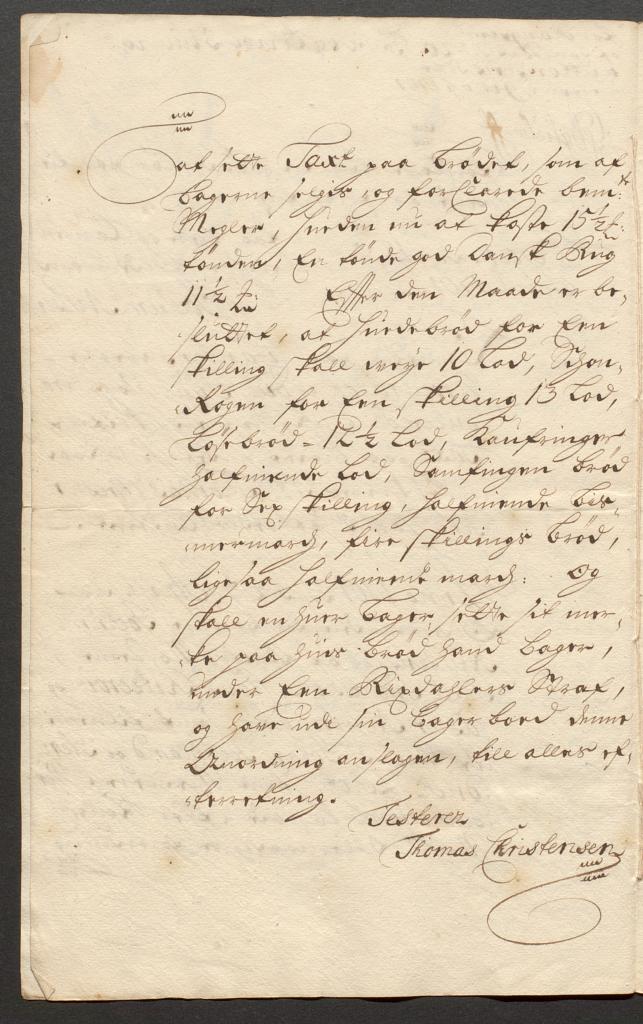 at sette Taxt paa brødet, som af
bagerne selgis, og forklarede bem:te
Megler, hueden nu at koste 15½
tønden, En tønde god Dansk Rug
11½ Efter den Maade er be-
sluttet, at huedebrød for Een
skilling skall weye 10 Lod, Schon-
Rogen for Een skilling 13 Lod,
Løsebrød - 12½ Lod, Kaufringer
halfniende Lod, brød
for Sex skilling, halfniende bis-
mermarch, fire skillings brød,
ligesaa halfniende march: Og
skall en huer bager sette sit mer-
ke paa huis brød hand bager,
under Een Rixdahlers Straf,
og have udi sin bager boed denne
Anordning anslagen, till alles ef-
terretning.
Testerer
Thomas Christensen